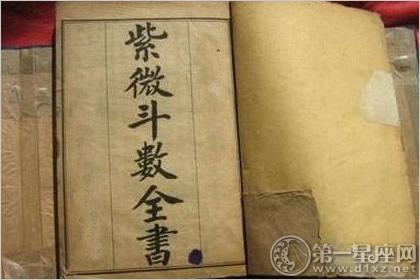 紫微斗數全書
第一星座网
www.d1xz.net